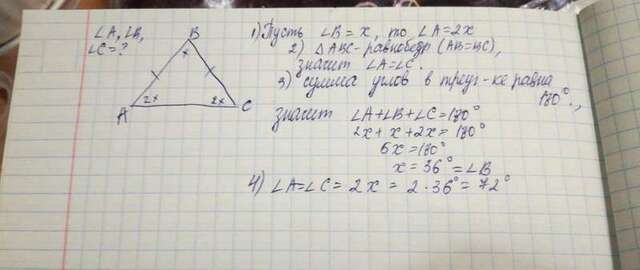 ∠A, ∠B,
∠C = ?
B
x
A
2x
2x
C
1) Пусть ∠B = x, то ∠A = 2x
2) ΔABC - равнобедр (AB = BC),
значит ∠A = ∠C.
3) сумма углов в треуг-ке равна
180°,
значит ∠A + ∠B + ∠C = 180°
2x + x + 2x = 180°
5x = 180°
x = 36° = ∠B
4) ∠A = ∠C = 2x = 2 · 36° = 72°